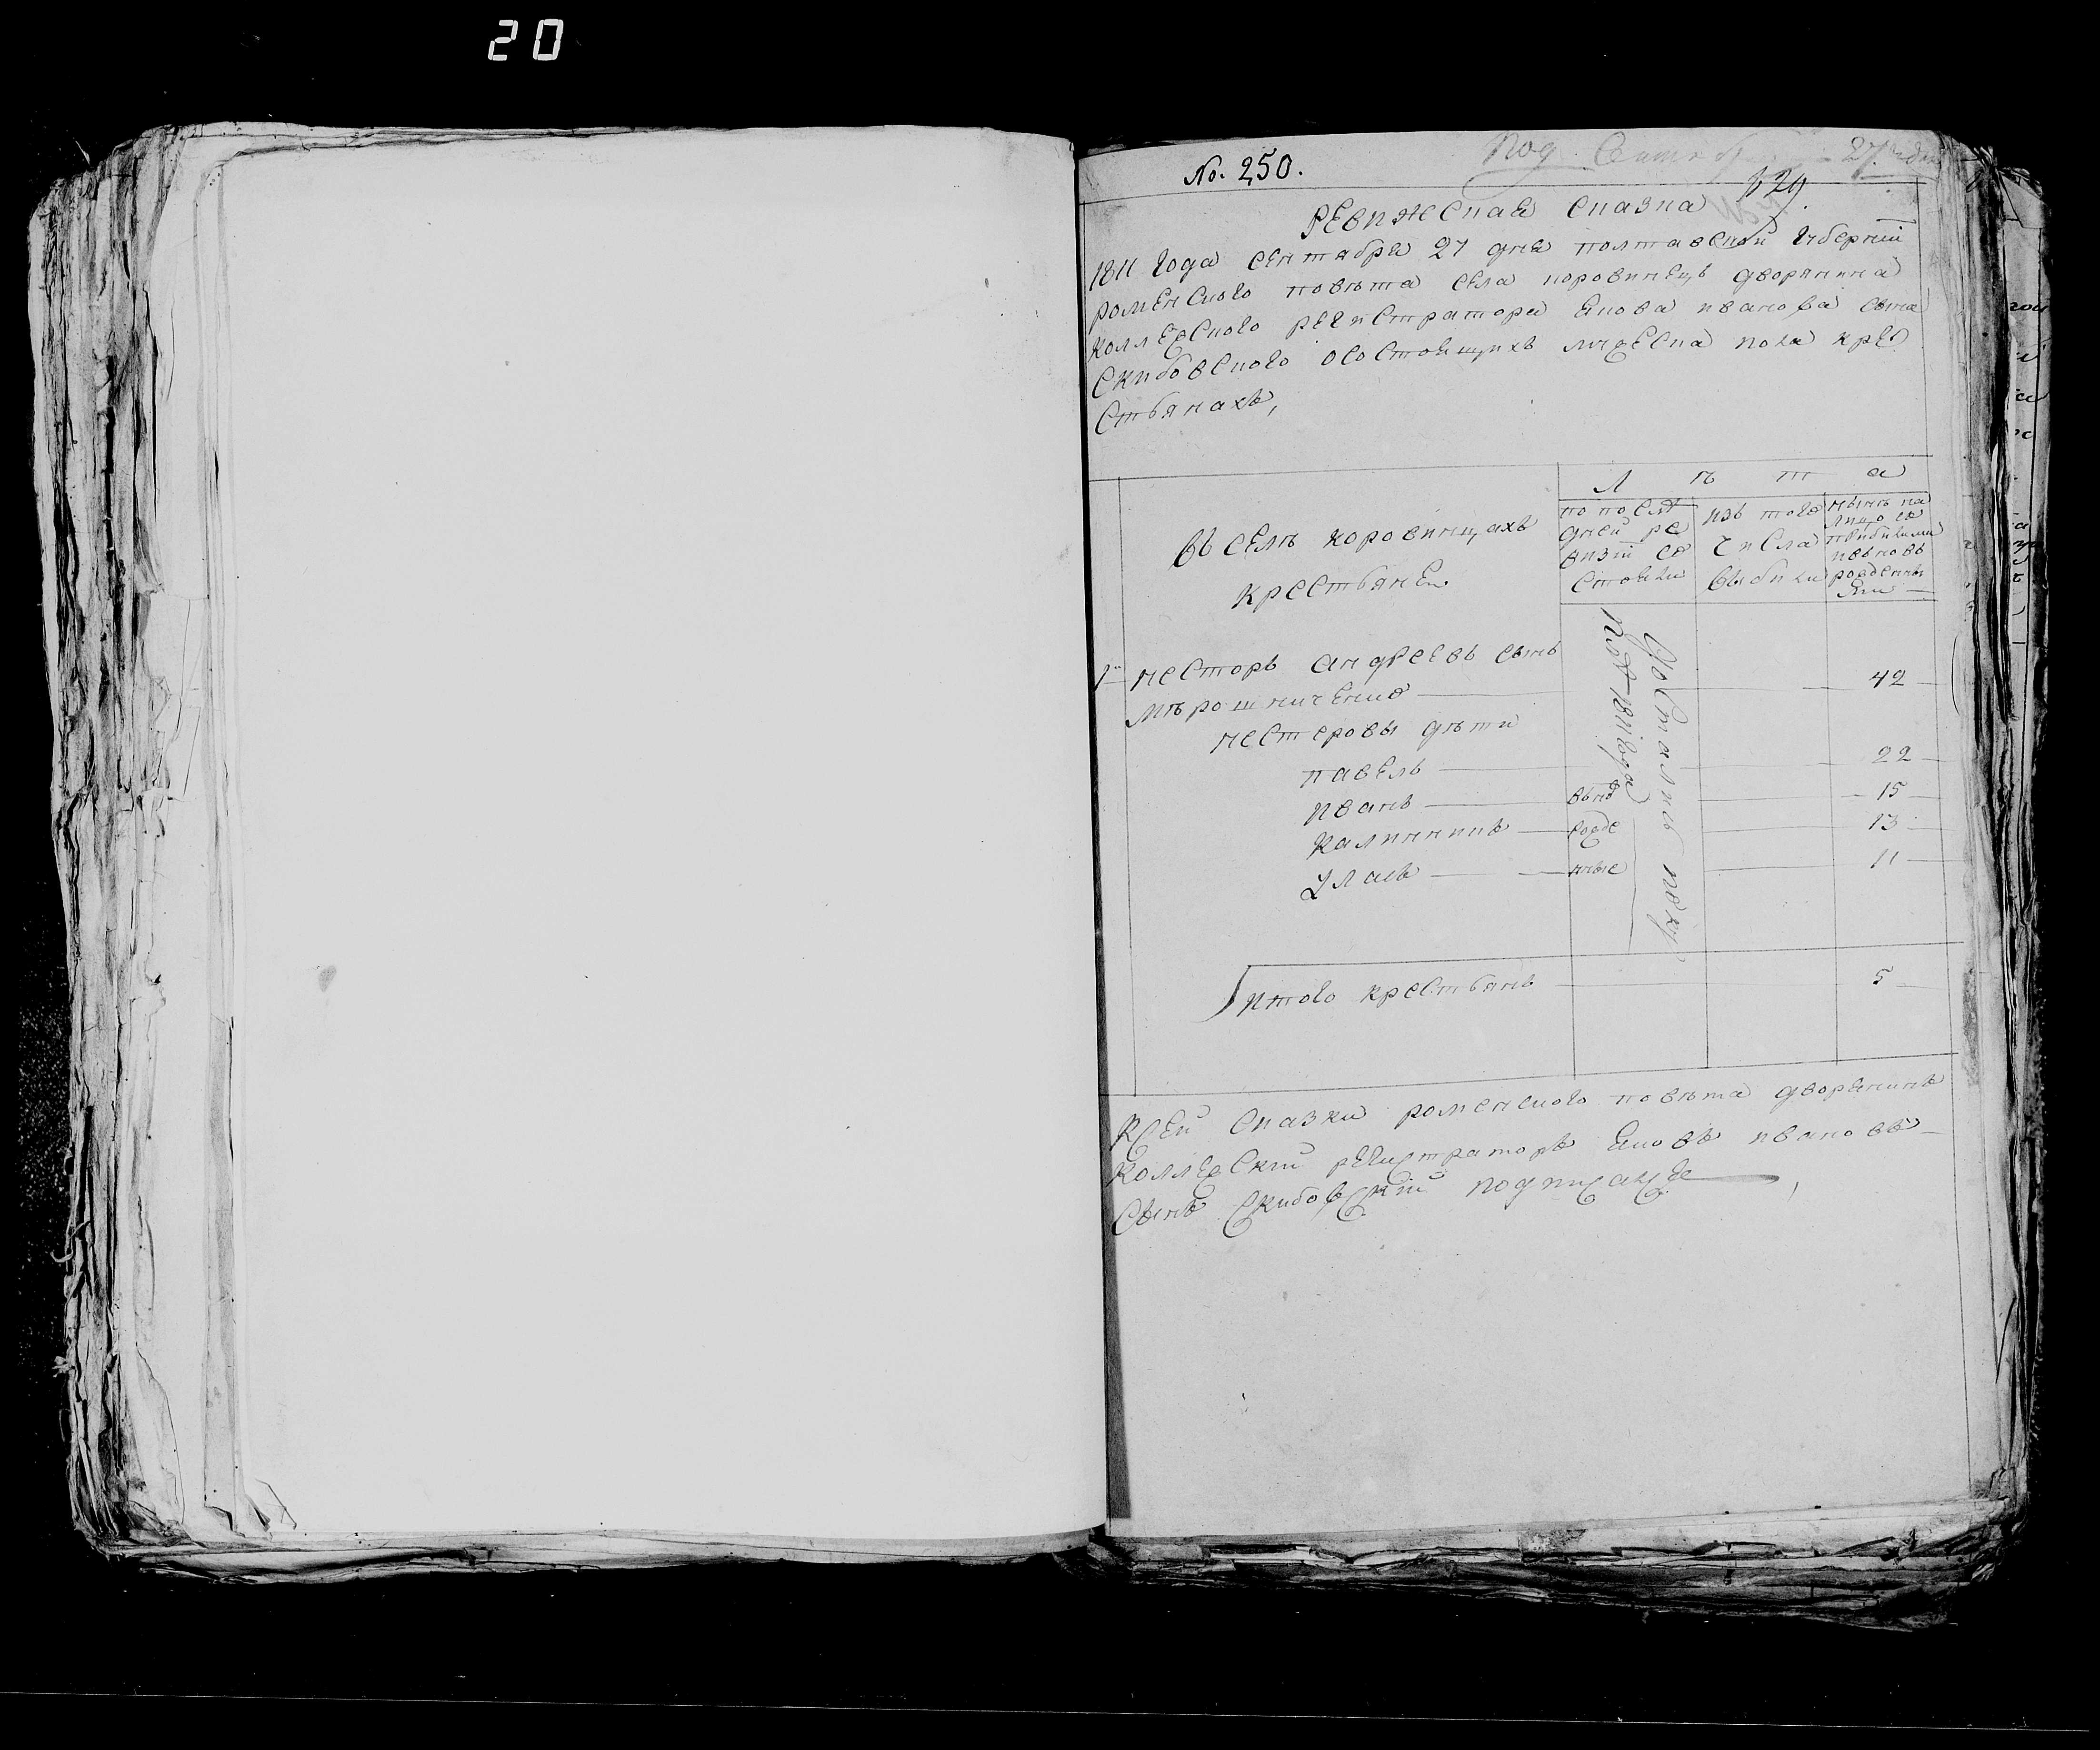 20
No. 250.
Под. Сентебр 27 дня
829
РЕВИЖСКАЯ СКАЗКА
1811 года сентября 27 дня полтавской губернии
роменского повѣта села коровинецъ дворянина
коллежского регистратора якова иванова сына
скибовского осостоящихъ мужеска пола кре
стьянахъ,
Лѣта
въ селѣ коровинцахъ
крестьяне
по послѣ
дней ре
визіи со
стояли
изъ того
числа
выбыли
нынѣ на
лицо со
прибылыми
и вьновь
рожденны
ями
1 несторъ андреевъ сынъ
мѣрошниченко 42
нестеровы дѣти
павелъ 22
иванъ 15
калинникъ 13
уласъ 11
вьно
рожде
нные
достались поку
пкою 1811 года
итого крестьянъ 5
Ксей сказки роменского повѣта дворянинъ
коллежский регистраторъ яковъ ивановъ
сынъ скибовскій подписался